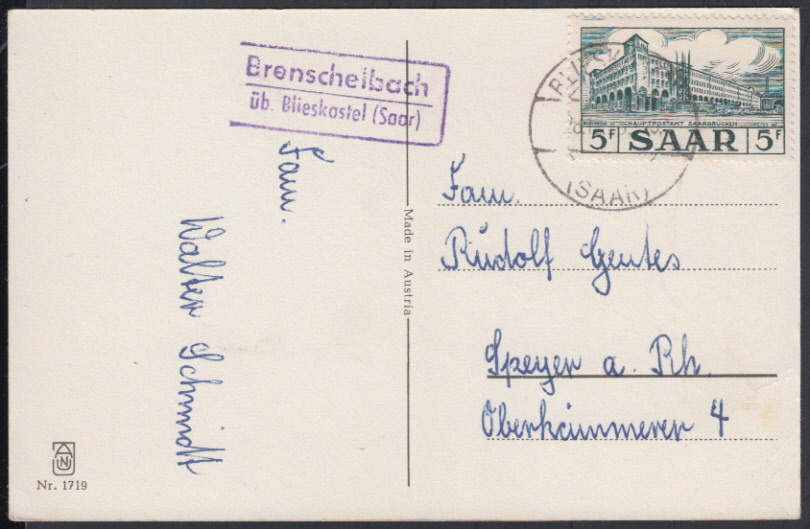 Brenscheibach
üb. Blieskastel (Saar)
HAUPTPOSTAMT SAARBRÜCKEN
5F SAAR 5F
(SAAR)
Fam.
Walter Schmidt
Made in Austria
Fam.
Rudolf Gentes
Speyer a. Rh.
Oberkämmerer 4
Nr. 1719